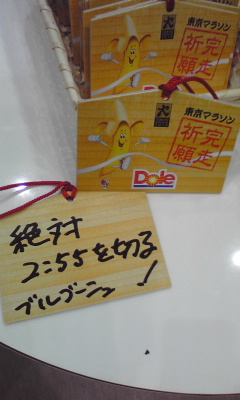 東京マラソン
完走
祈願
Dole
東京マラソン
完走
祈願
Dole
絶対
2:55を切る
ブルゴーニュ!